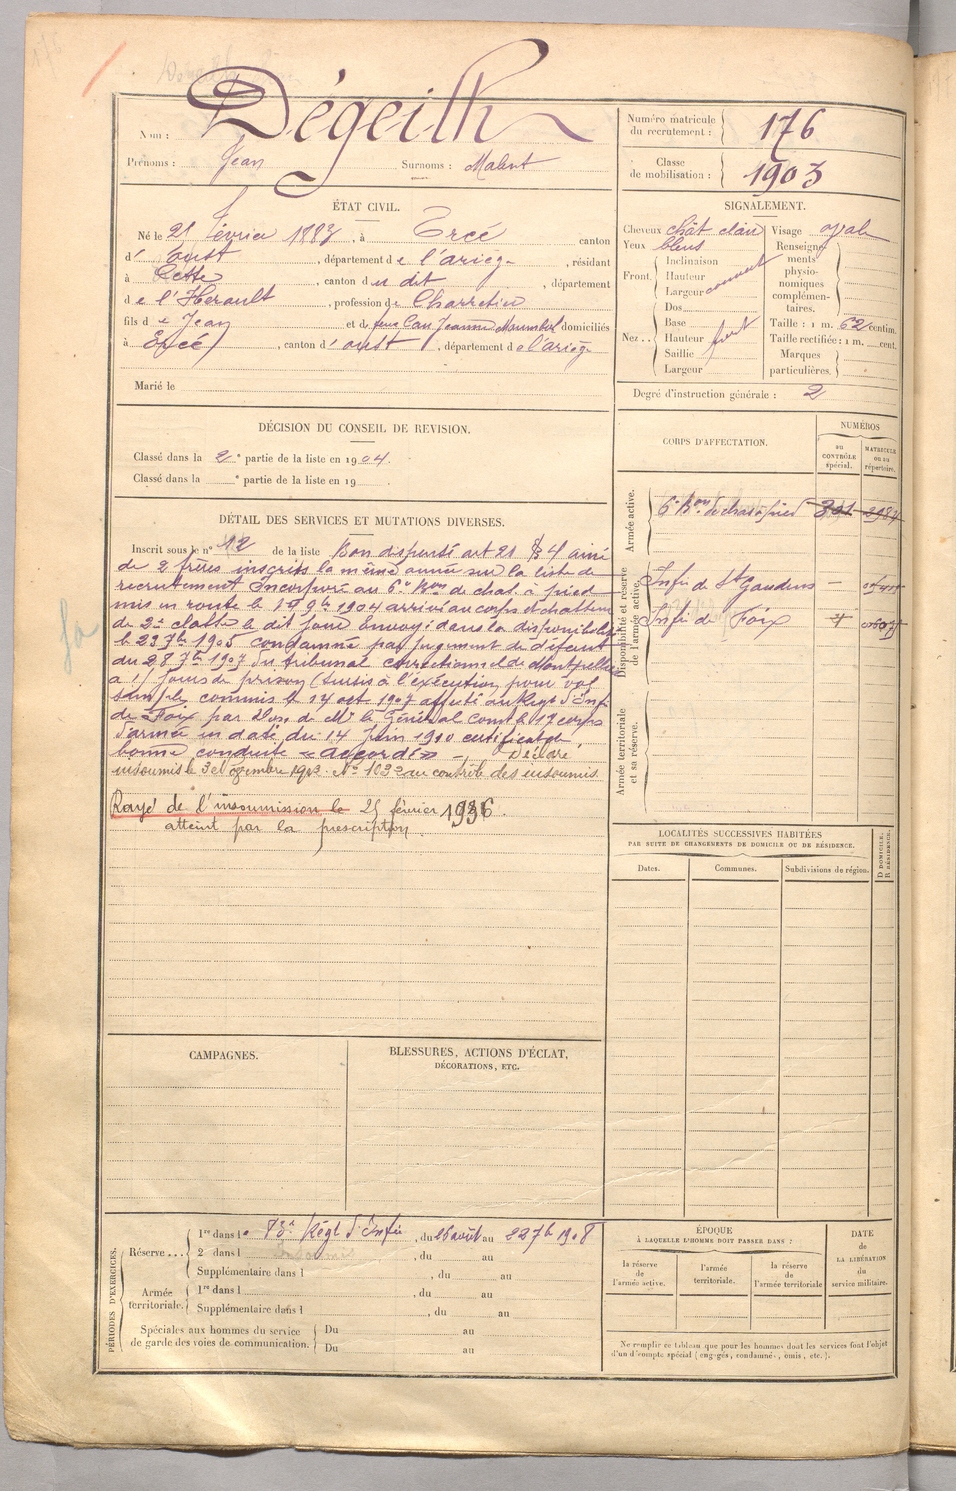 Dégeilh
Nom :
Prénoms : Jean Surnoms : Malent
Numéro matricule du recrutement : 176
Classe de mobilisation : 1903
ÉTAT CIVIL.
Né le 21 février 1883, à Ercé canton
d' Oust, département de l'ariège, résidant
à Cette, canton du dit, département
de l'Hérault, profession de Charretier
fils de Jean et de feue Cau Jeanne domiciliés
à Ercé, canton d'oust, département de l'ariège
Marié le
SIGNALEMENT.
Cheveux chât clair Visage ovale
Yeux bleus Renseignements physionomiques complémentaires.
Front. Inclinaison
Hauteur
Largeur couvert
Nez.. Dos
Base
Hauteur fort
Saillie
Largeur
Taille : 1 m. 62 centim.
Taille rectifiée : 1 m. cent.
Marques particulières.
Degré d'instruction générale : 2
DÉCISION DU CONSEIL DE REVISION.
Classé dans la 2e partie de la liste en 1904.
Classé dans la e partie de la liste en 19
CORPS D'AFFECTATION.
NUMÉROS
au CONTRÔLE spécial.
MATRICULE ou au répertoire.
Armée active.
6e Bon de chas à pied 321 2984
Disponibilité et réserve de l'armée active.
Infie de St Gaudens –
Infie de Foix
Armée territoriale et sa réserve.
DÉTAIL DES SERVICES ET MUTATIONS DIVERSES.
Inscrit sous le n° 12 de la liste Bon dispensé art 21 § 4 ainé
de 2 frères inscrits la même année sur la liste de
recrutement Incorporé au 6e Bon de chas. à pied
mis en route le 19 9bre 1904 arrivé au corps et chasseur
de 2e classe le dit jour Envoyé dans la disponibilité
le 23 7bre 1905 condamné par jugement de défaut
du 28 7bre 1907 du tribunal correctionnel de Montpellier
à 15 jours de prison (sursis à l'exécution pour vol
simple commis le 14 oct 1907 affecté au Regt d'Infie
de Foix par Don de Mr le Général comt le 17 corps
d'armée en date du 14 Juin 1910 certificat de
bonne conduite «accordé» – Déclaré
insoumis le au contrôle des insoumis.
Rayé de l'insoumission le 25 février 1936.
atteint par la prescription.
LOCALITÉS SUCCESSIVES HABITÉES
PAR SUITE DE CHANGEMENTS DE DOMICILE OU DE RÉSIDENCE.
Dates. Communes. Subdivisions de région. D DOMICILE. R RÉSIDENCE.
CAMPAGNES.
BLESSURES, ACTIONS D'ÉCLAT,
DÉCORATIONS, ETC.
PÉRIODES D'EXERCICES.
Réserve... 1re dans le Régt d'Infie, du 26 août au 22 7b 1908
2e dans l , du au
Supplémentaire dans l , du au
Armée territoriale. 1re dans l , du au
Supplémentaire dans l , du au
Spéciales aux hommes du service de garde des voies de communication. Du au
Du au
ÉPOQUE
À LAQUELLE L'HOMME DOIT PASSER DANS :
la réserve de l'armée active.
l'armée territoriale.
la réserve de l'armée territoriale
DATE de LA LIBÉRATION du service militaire.
Ne remplir ce tableau que pour les hommes dont les services font l'objet
d'un décompte spécial (engagés, condamnés, omis, etc.).